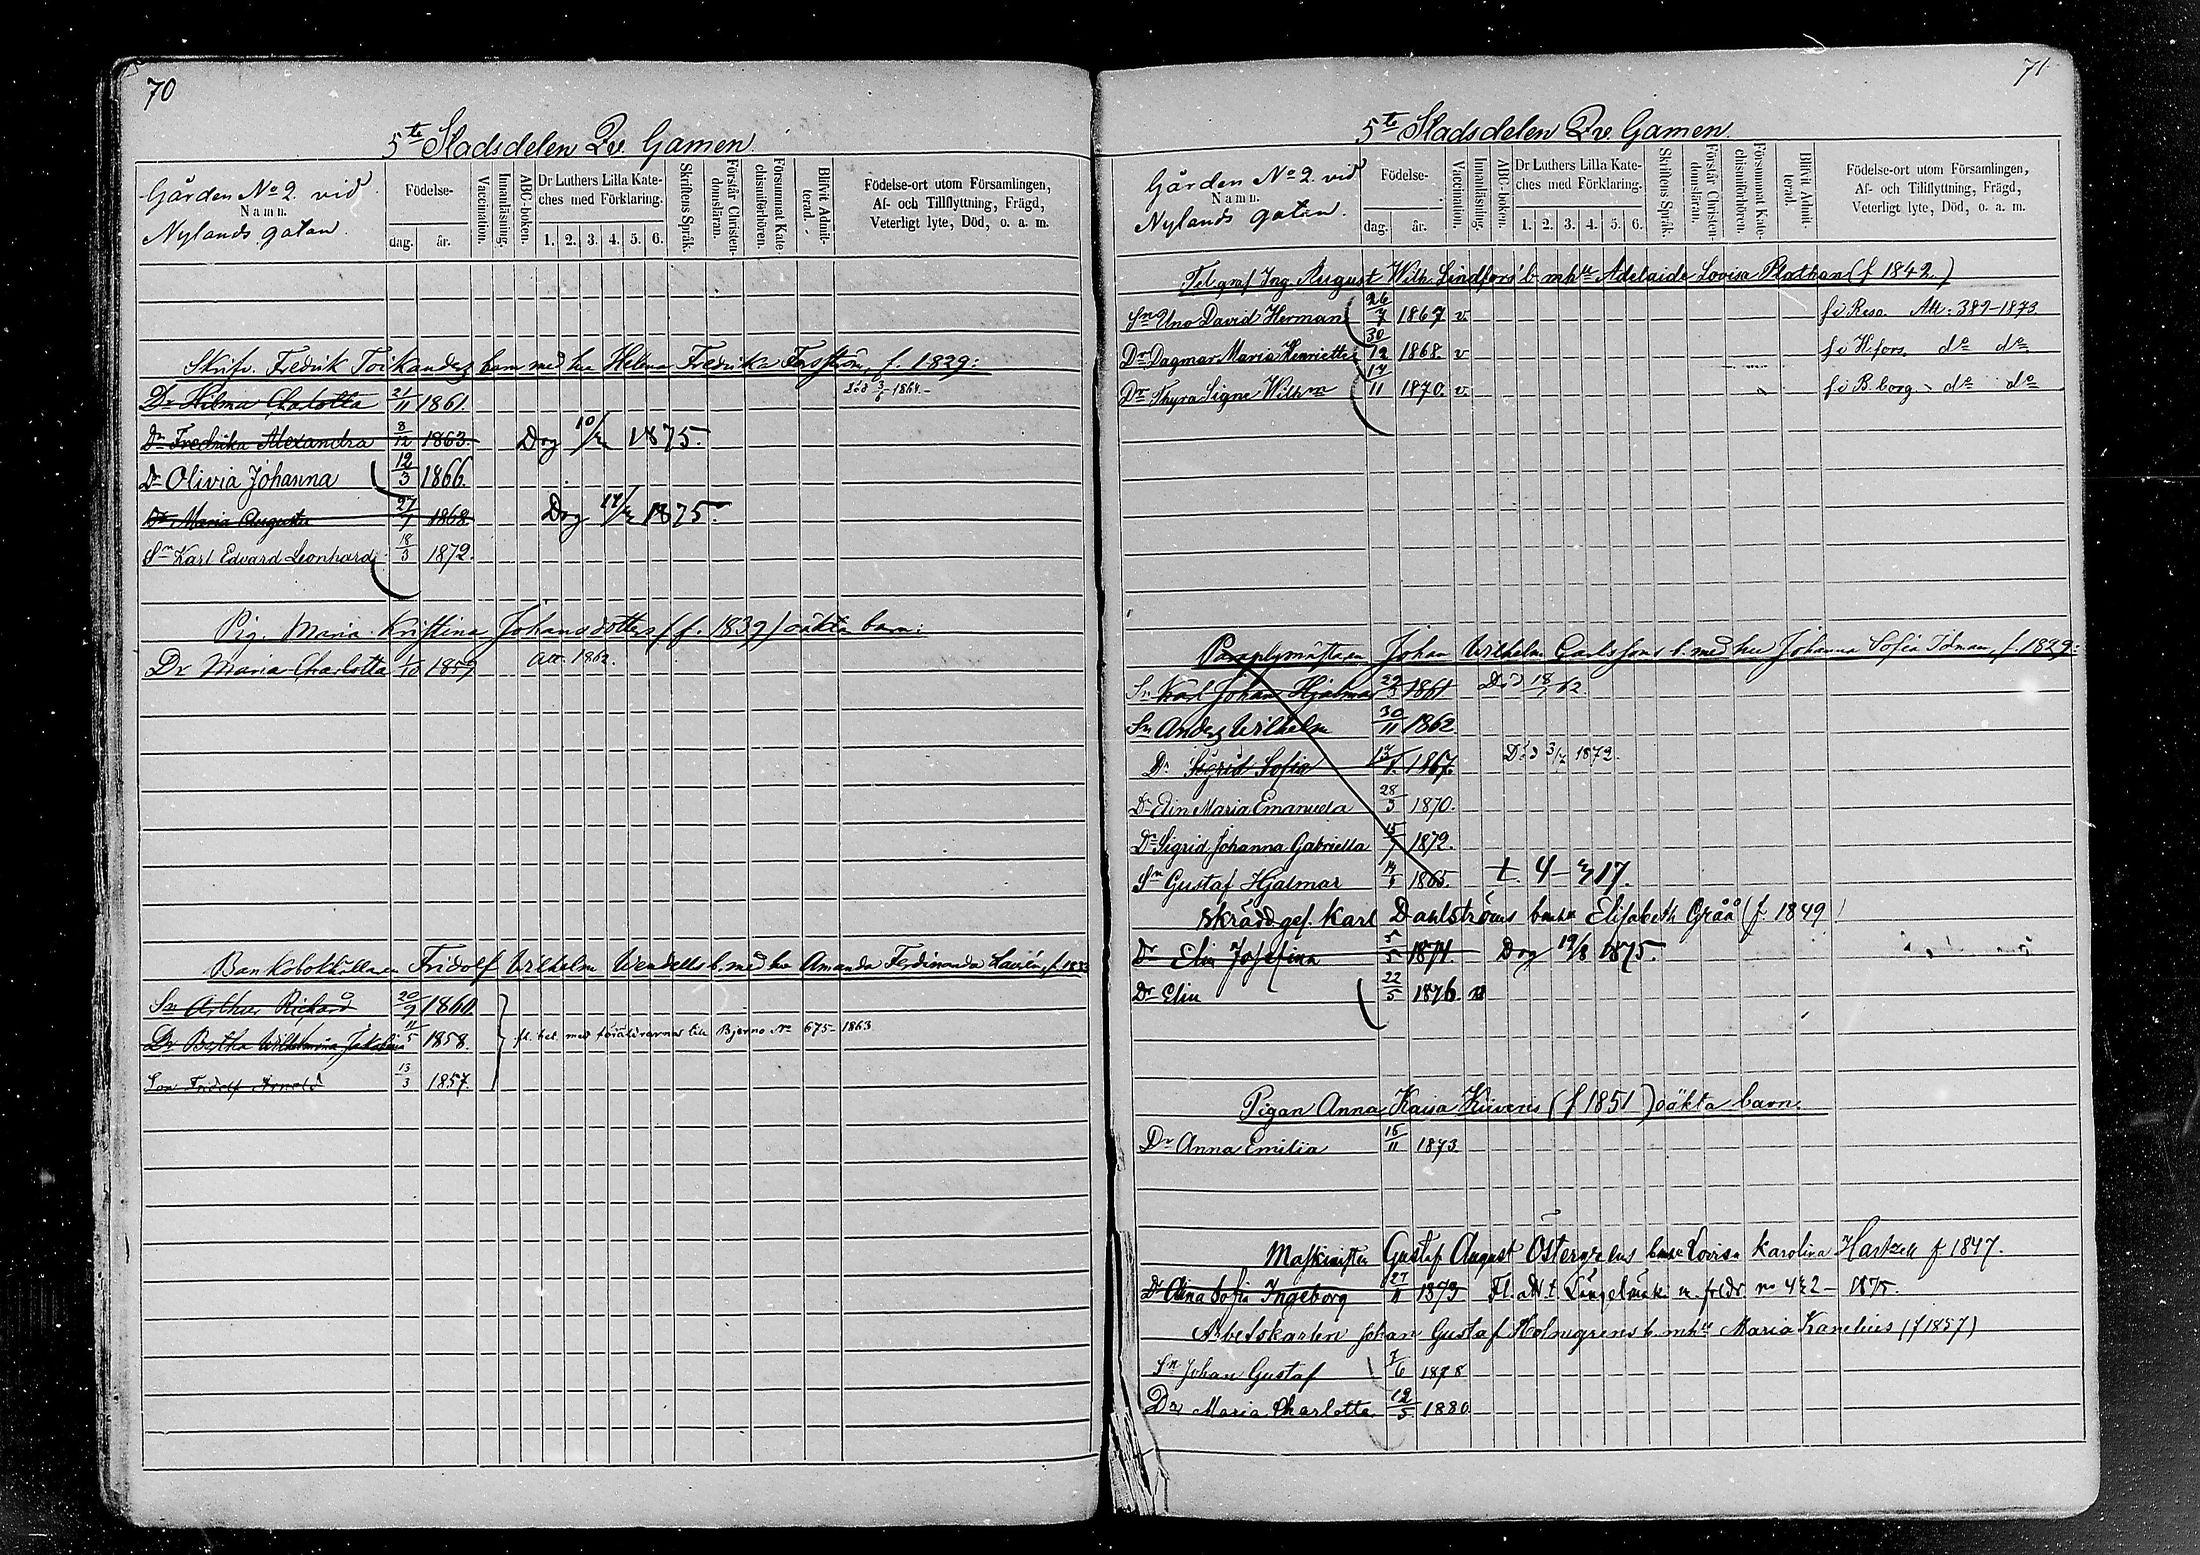 70
5te Stadsdelen Qv. Gamen.
Gården No 2. vid
Namn.
Nylands gatan.
Födelse-
dag.
år.
Vaccination.
Innanläsning.
ABC-boken.
Dr Luthers Lilla Kate-
ches med Förklaring.
1. 2. 3. 4. 5. 6.
Skriftens Språk.
Förstår Christen-
domsläran.
Försummat Kate-
chismiförhören.
Blifvit Admit-
terad.
Födelse-ort utom Församlingen,
Af- och Tillflyttning, Frägd,
Veterligt lyte, Död, o. a. m.
Fredrik barn med hu Helena Fredrika f. 1829:
Dr Hilma Charlotta 21/11 1861. Död 3/6 1864.
Dr Fredrika Alexandra 8/12 1863. Dog 10/2 1875.
Dr Olivia Johanna 12/3 1866.
Dr Maria Augusta 27/1 1868. Dog 1875.
Sn Karl Edvard Leonhard 18/3 1872.
Pig. Maria Kristina Johansdotters (f. 1839) oäkta barn:
Dr Maria Charlotta 1/10 1859 Att. 1862.
Bankobokhållaren Fridolf Wilhelm Wendells b. med hu Amanda Ferdinanda
Sn Arthur Richard 20/9 1860.
Dr Bertha Wilhelmina 11/5 1858. fl. bet. med föräldrarna till Bjerno No 675-1863
Son Fridolf Arnold 13/3 1857.
71.
5te Stadsdelen Qv Gamen
Gården No 2. vid
Namn.
Nylands gatan.
Födelse-
dag.
år.
Vaccination.
Innanläsning.
ABC-boken.
Dr Luthers Lilla Kate-
ches med Förklaring.
1. 2. 3. 4. 5. 6.
Skriftens Språk.
Förstår Christen-
domsläran.
Försummat Kate-
chismiförhören.
Blifvit Admit-
terad.
Födelse-ort utom Församlingen,
Af- och Tillflyttning, Frägd,
Veterligt lyte, Död, o. a. m.
Telgraf Ing. August Wilh. Lindfors' b mhu Adelaide Lovisa Plathan (f 1842.)
Sn Uno David Herman 26/7 1867 v. f i Reso. Att: 389-1873
Dr Dagmar Maria Henriette 30/12 1868. v f i H.fors. do do
Dr Thyra Signe Wilhm 14/11 1870. v. f i B.borg - do do
Johan Wilhelm Carlssons b. med hu Johanna Sofia Idman, f. 1829:
Sn Karl Johan Hjalmar 29/3 1861 Död
Sn Anders Wilhelm 30/11 1862.
Dr Sigrid Sofia 1867. Död 3/7 1872.
Dr Elin Maria Emanuela 28/3 1870.
Dr Sigrid Johanna Gabriella 15/7 1872.
Sn Gustaf Hjalmar 1865.
Skräddges. Karl Dahlströms bmhu Elisabeth Gråå (f. 1849)
Dr Elin Josefina 5/5 1874 Dog 19/8 1875.
Dr Elin 22/5 1876. v
Pigan Anna Kaisa (f 1851) oäkta barn.
Dr Anna Emilia 15/11 1873
Maskinisten Gustaf August bmhu Lovisa Karolina f 1847.
Dr Alina Sofia Ingeborg 27/11 1873 Fl. att. t. Längelmäki m. frldr. no 472 - 1875.
Arbetskarlen Johan Gustaf Holmgrens b. mhu Maria (f 1857)
Sn Johan Gustaf 7/6 1878
Dr Maria Charlotta 12/5 1880